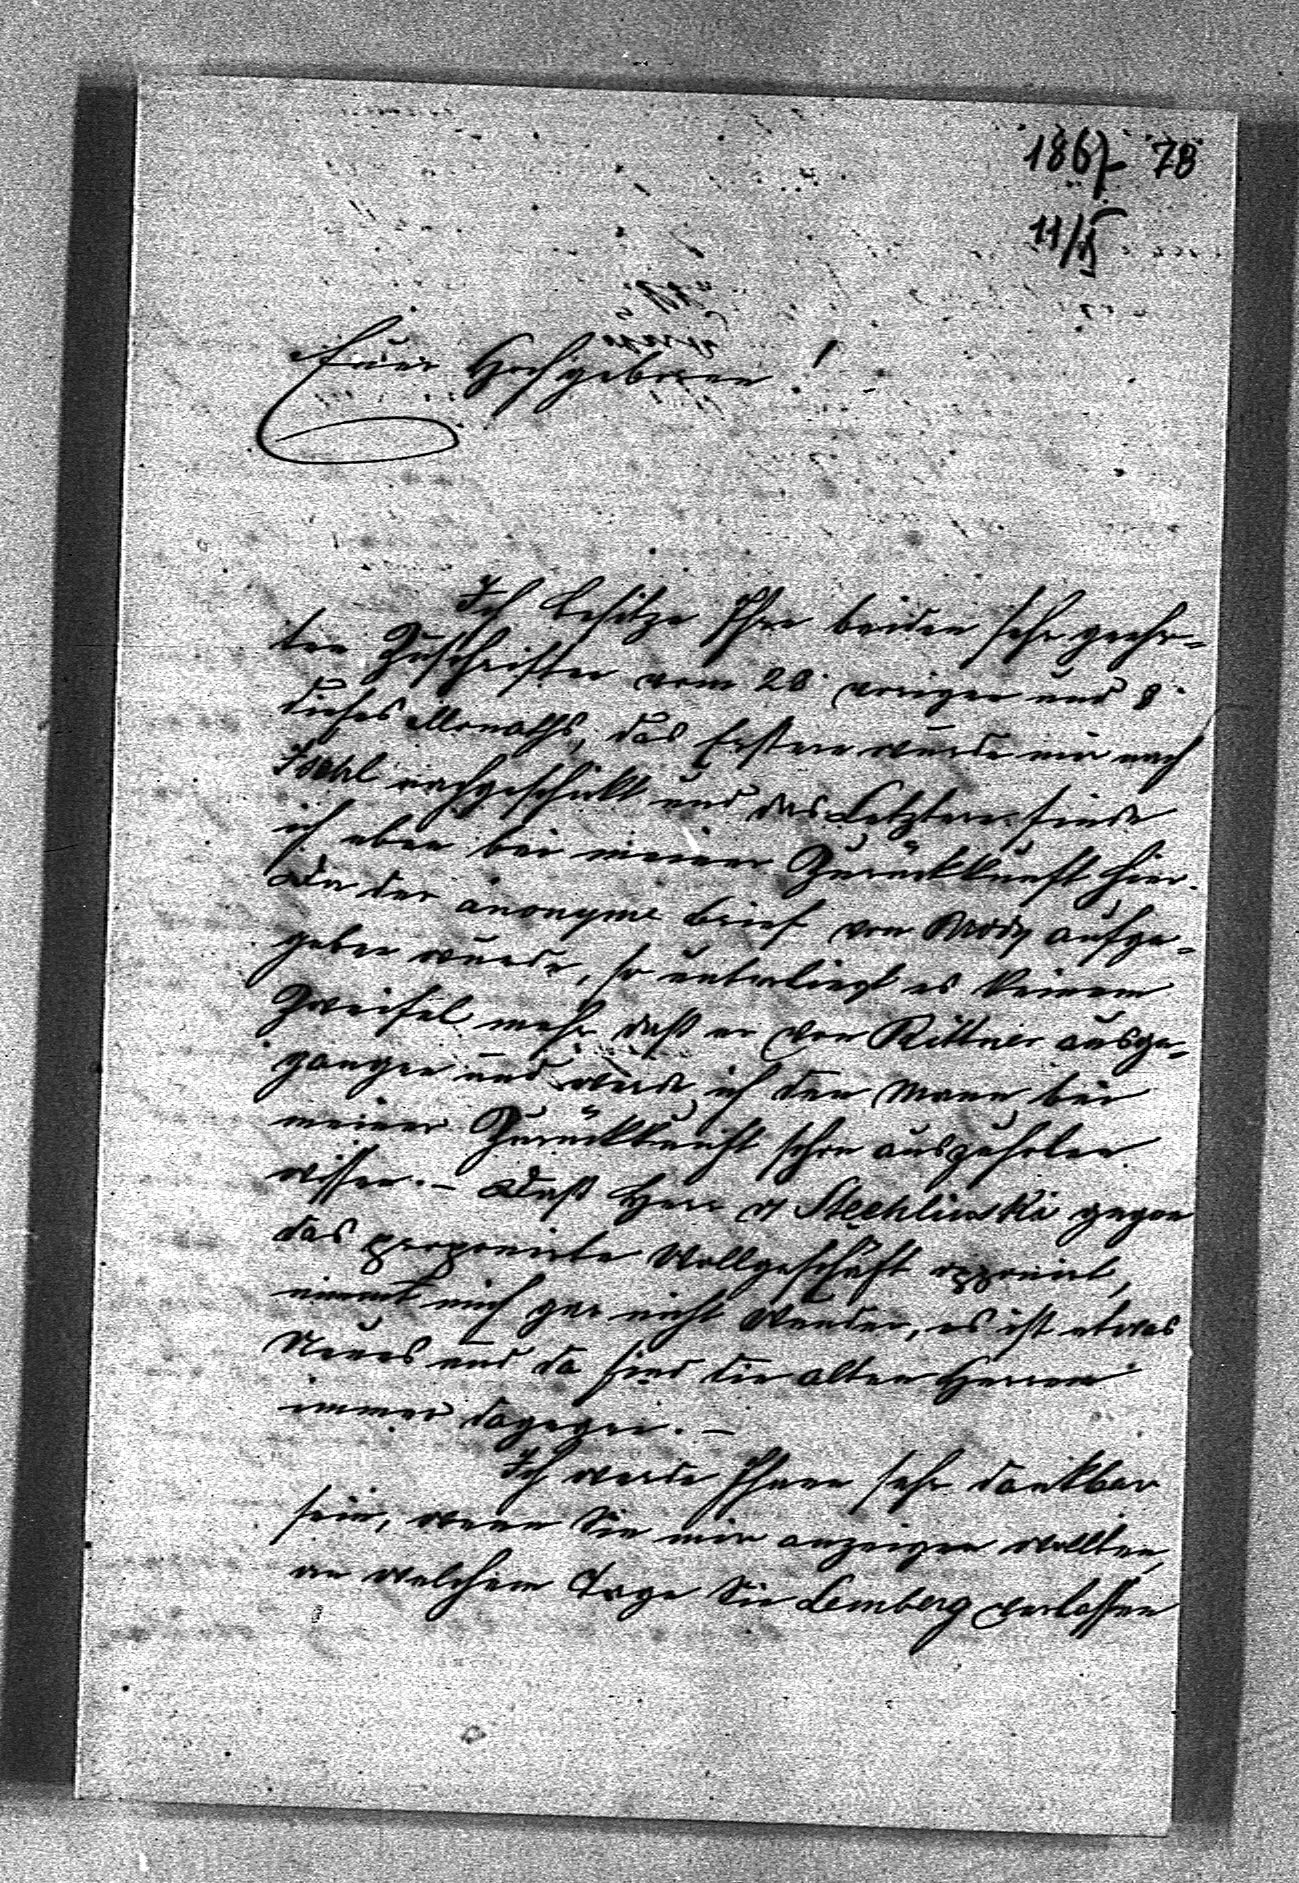 1867 78
11/X
Euer Hochgeboren!
Ich besitze Ihre beiden sehr geehr-
ten Zuschriften vom 28. vorigen und 8.
dieses Monaths, das Erstere wurde mir nach
Ischl nachgeschickt und das Letztere finde
ich eben bei meiner Zurückkunft hier.
Da der anonyme Brief von Brody aufge-
geben wurde, so unterliegt es keinem
Zweifel mehr daß er von Rittner ausge-
gangen und werde ich den Mann bei
meiner Zurückkunft schon auszuholen
wissen. – Daß Herr v Stechlinski gegen
das proponirte Wollgeschäft opponirt,
nimmt mich gar nicht Wunder, es ist etwas
Neues und da sind die alten Herren
immer dagegen. –
Ich werde Ihnen sehr dankbar
sein, wenn Sie mir anzeigen wollten,
an welchem Tage Sie Lemberg verlassen